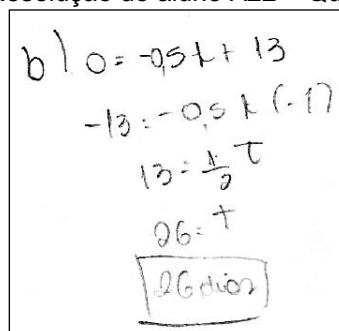 b) 0 = -0,5 t + 13
-13 = -0,5 t (-1)
13 = 1/2 t
26 = t
26 dias